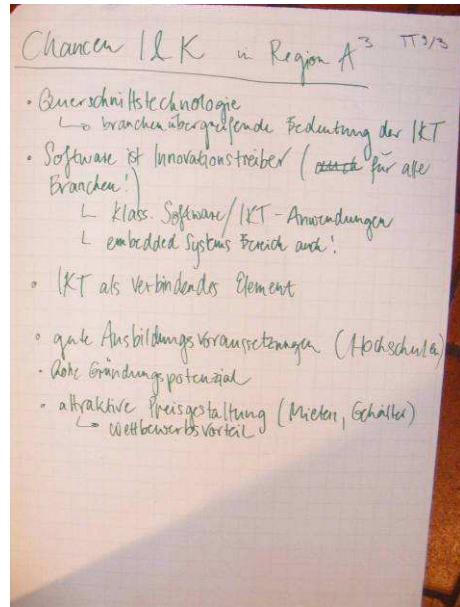 Chancen I & K in Region A³ TT9/3
• Querschnittstechnologie
↳ branchenübergreifende Bedeutung der IKT
• Software ist Innovationstreiber (auch für alle
Branchen!)
∟ klass. Software/IKT-Anwendungen
∟ embedded Systems Bereich auch!
• IKT als verbindendes Element
• gute Ausbildungsvoraussetzungen (Hochschulen)
• hohe Gründungspotenzial
• attraktive Preisgestaltung (Mieten, Gehälter)
↳ Wettbewerbsvorteil